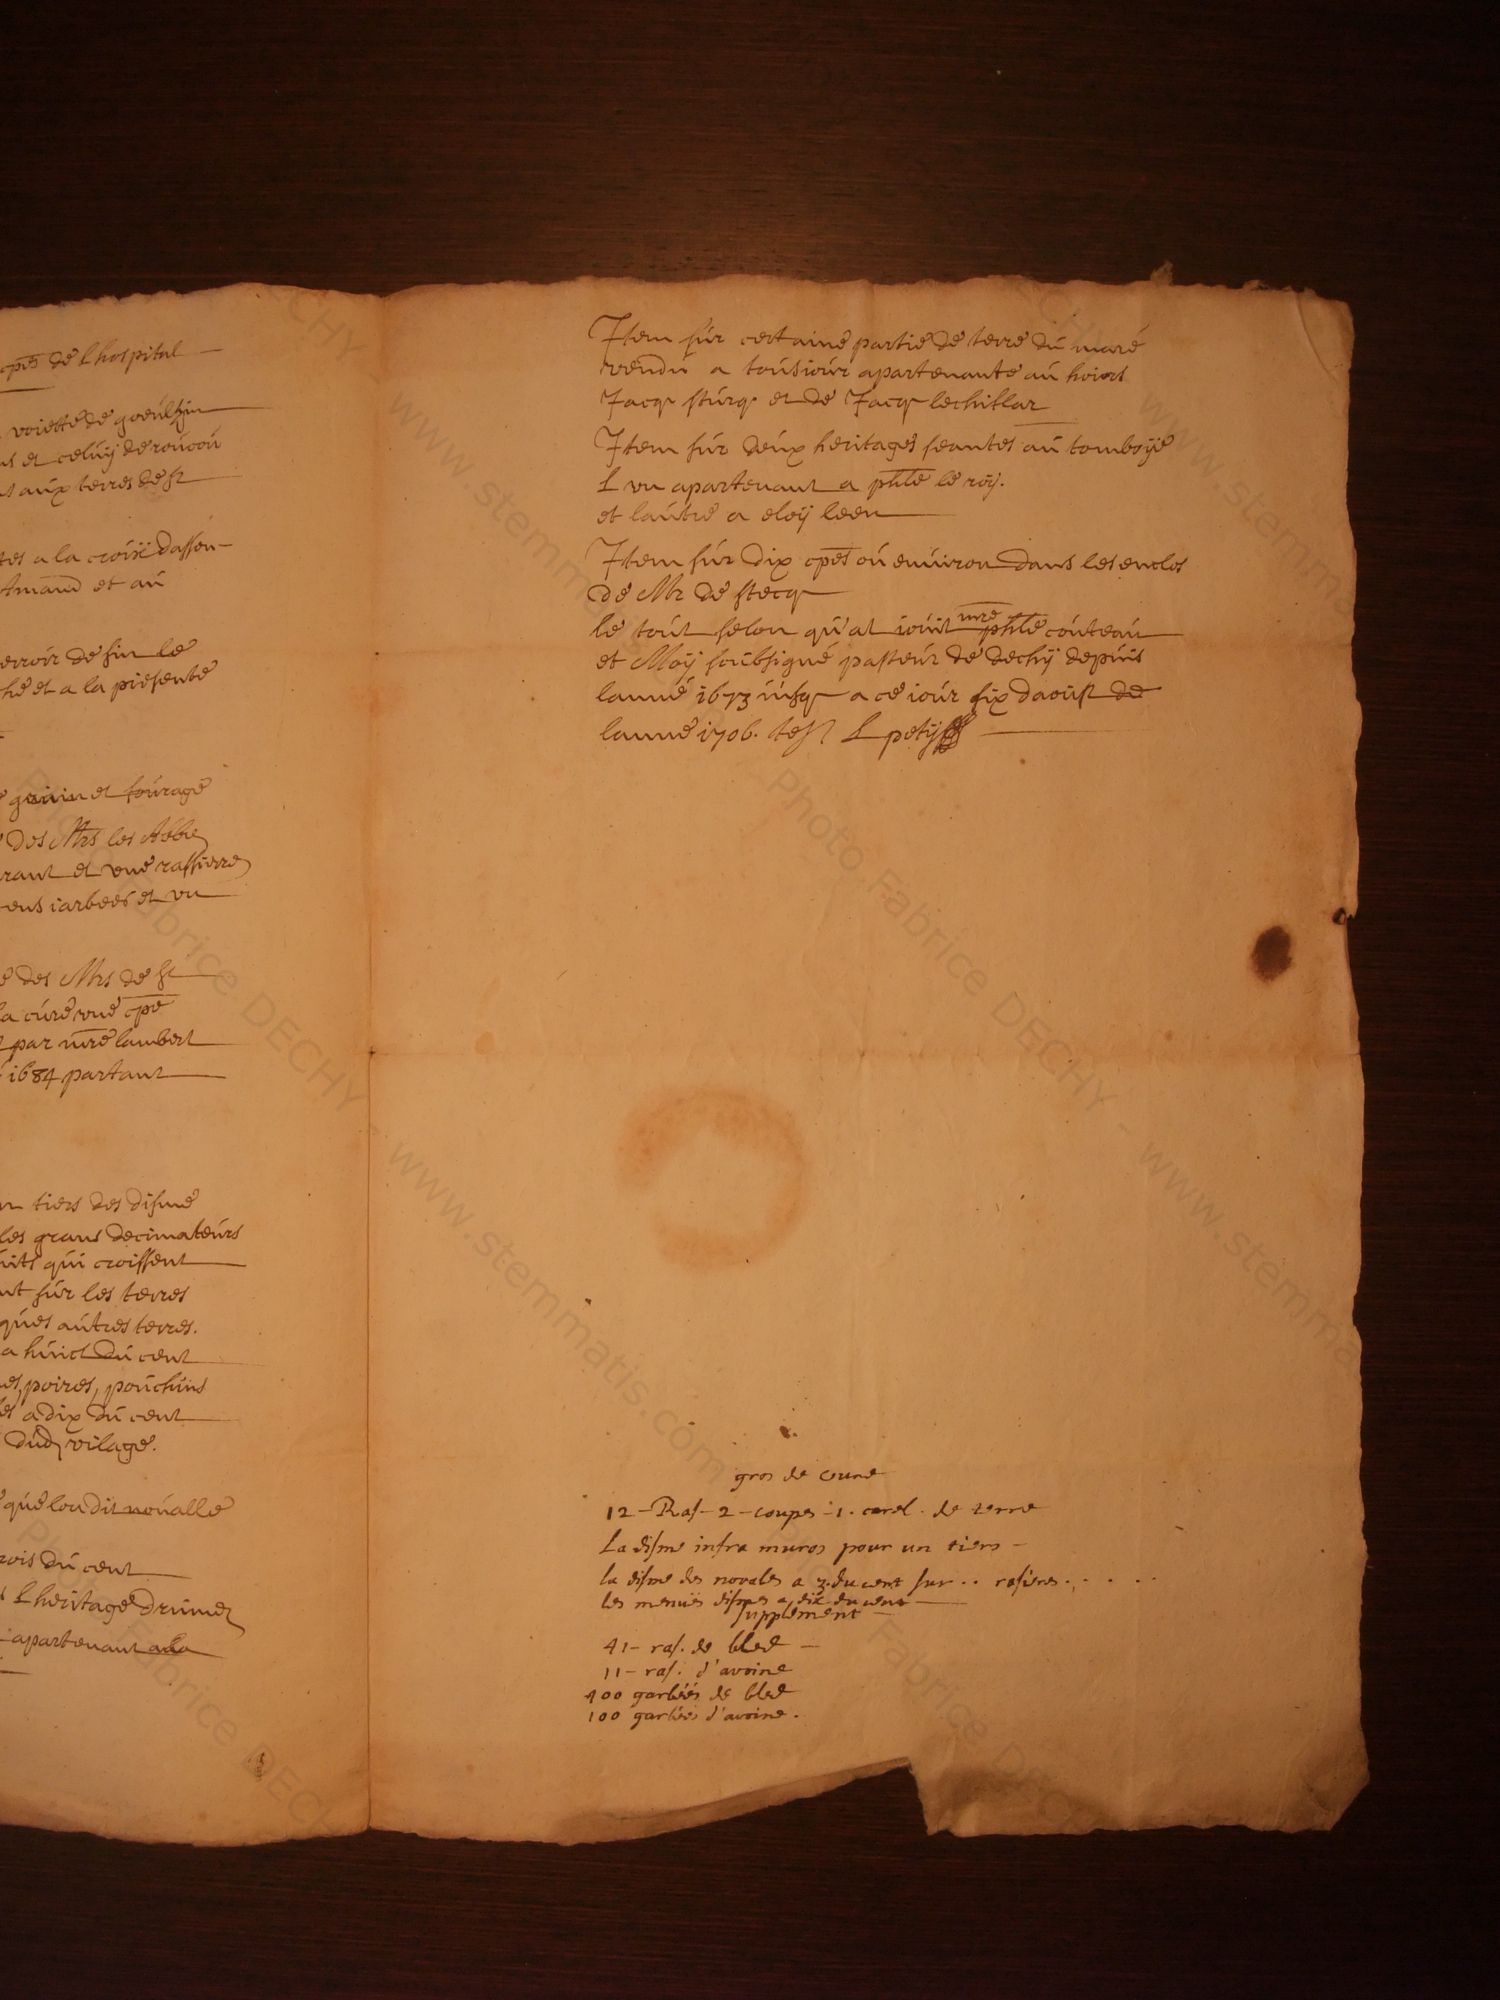 cp̄es de l hospital
voiette de goeulzin
ns et celuÿ de roucou
t aux terres de st
tes a la croix dassen-
Amand et au
erroir de sin le
he et a la presente
grain et fourage
des Mrs les Abbe
rant et une rassierre
cens iarbees et un
e des Mrs de st
la cure une cp̄e
par mre lambert
1684 partant
n tiers des disme
les grans decimateurs
uits qui croissent
nt sur les terres
ques autres terres.
a huict du cent
es, poires, pouchins
les a dix du cent
dud vilage.
que lon dit noualle
rois du cent
L heritage Drumez
apartenant a la
Item sur certaine partie de terre du maré
vendu a tousiour apartenante au hoirs
Jacq sturq et de Jacq lechillar
Item sur deux heritages seantes au tomboÿe
L un apartenant a phle le roÿ.
et lautre a eloÿ leen
Item sur dix cp̄es ou enuiron dans les enclos
de Mr de stecq
le tout selon qu'at iouit mre phle couteau
et Moÿ soubsigné pasteur de dechÿ depuis
lanné 1673 iusq a ce iour six daoust de
lanné 1706. test L petÿ
gros de cure
12 - Ras - 2 - coupes - 1 . carel . de terre
La disme infra muros pour un tiers -
la disme des novales a 3. du cent sur .. rasieres . . . . .
les menües dismes a dix du cent
supplement
41 - ras. de bled -
11 - ras. d'avoine
400 garbées de bled
100 garbées d'avoine .
www.stemmatis.com - Photo Fabrice DECHY